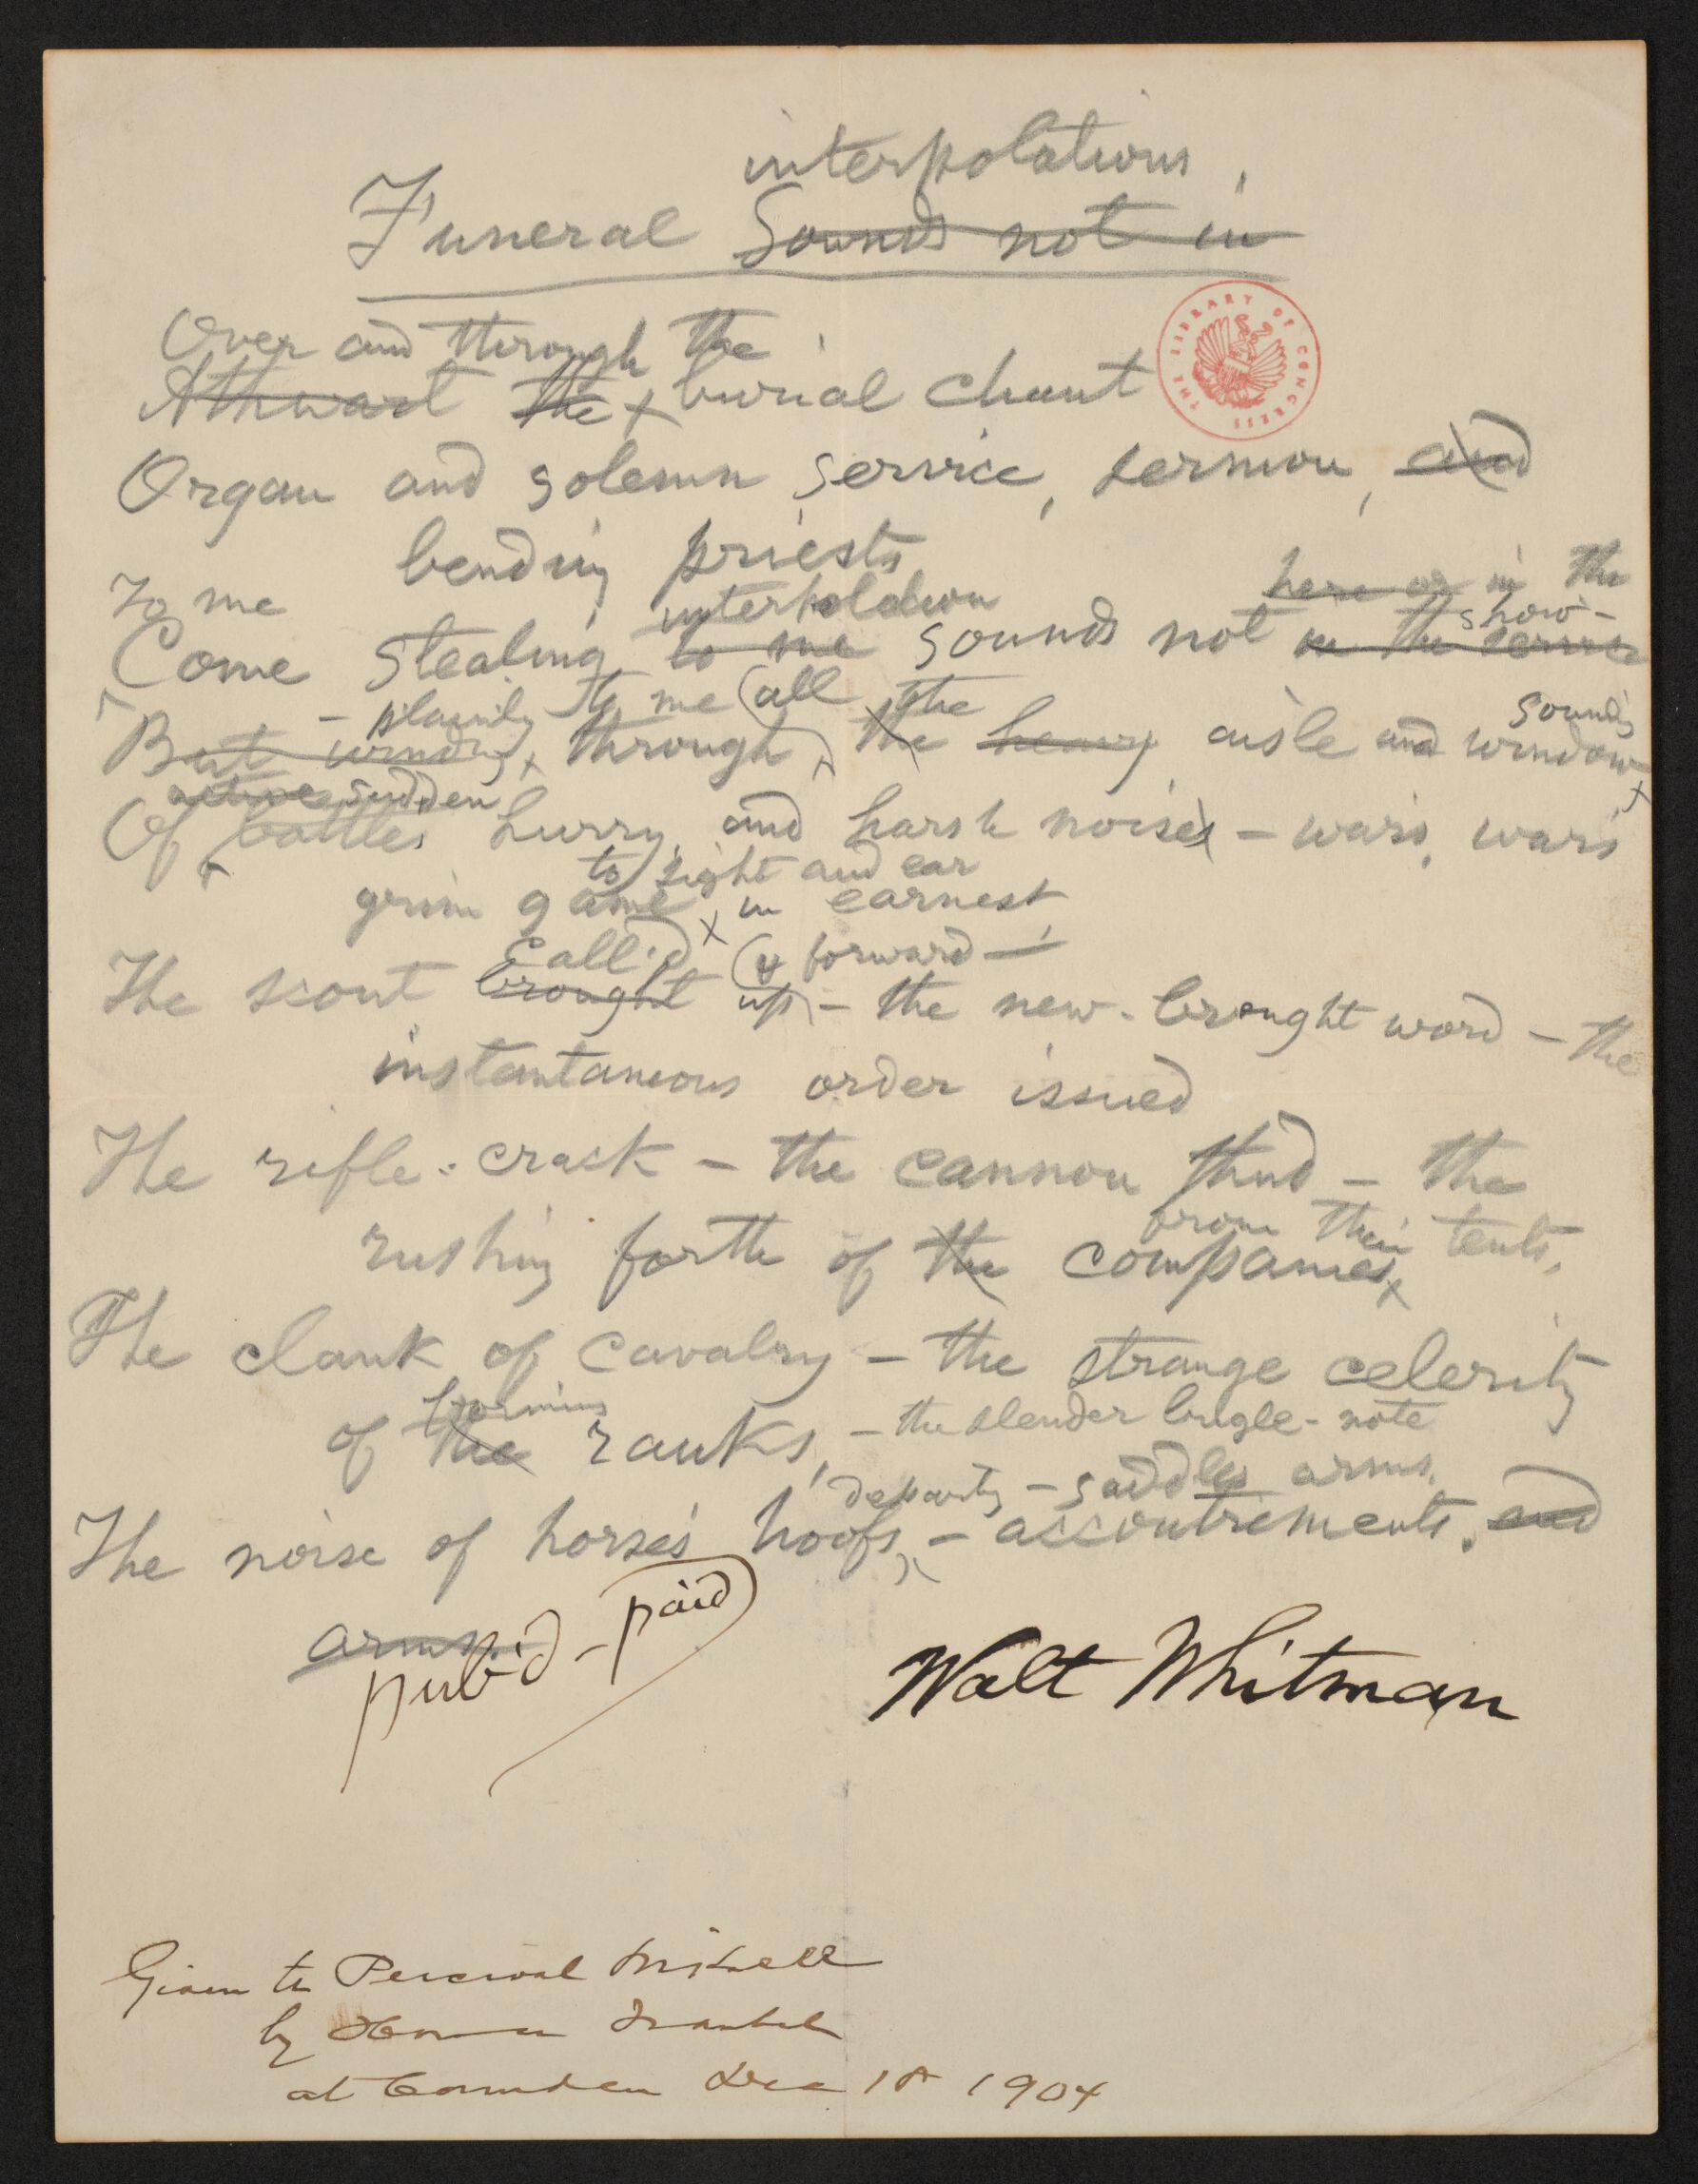 interpolations,
Funeral Sounds not in
THE LIBRARY OF CONGRESS
Over and through the
Athwart the burial chant
Organ and solemn service, sermon, and
bending priests
here or in the
To me interpolation show-
Come stealing to me sounds not in the service
- plainly to me (all the sounds
But through the heavy aisle and window
sudden
Of battles hurry, and harsh noises - wars, wars
to sight and ear
grim game in earnest,
call'd & forward -
The scout brought up - the new-brought word - the
instantaneous order issued
The rifle-crack - the cannon thud - the
from their tents,
rushing forth of the companies
The clank of cavalry - the strange celerity
forming - the slender bugle-note
of the ranks,
departing - saddles arms,
The noise of horses' hoofs, - accoutrements, and
arms.
pub'd - paid
Walt Whitman
Given to Percival
by Horace Traubel
at Camden Dec 1904